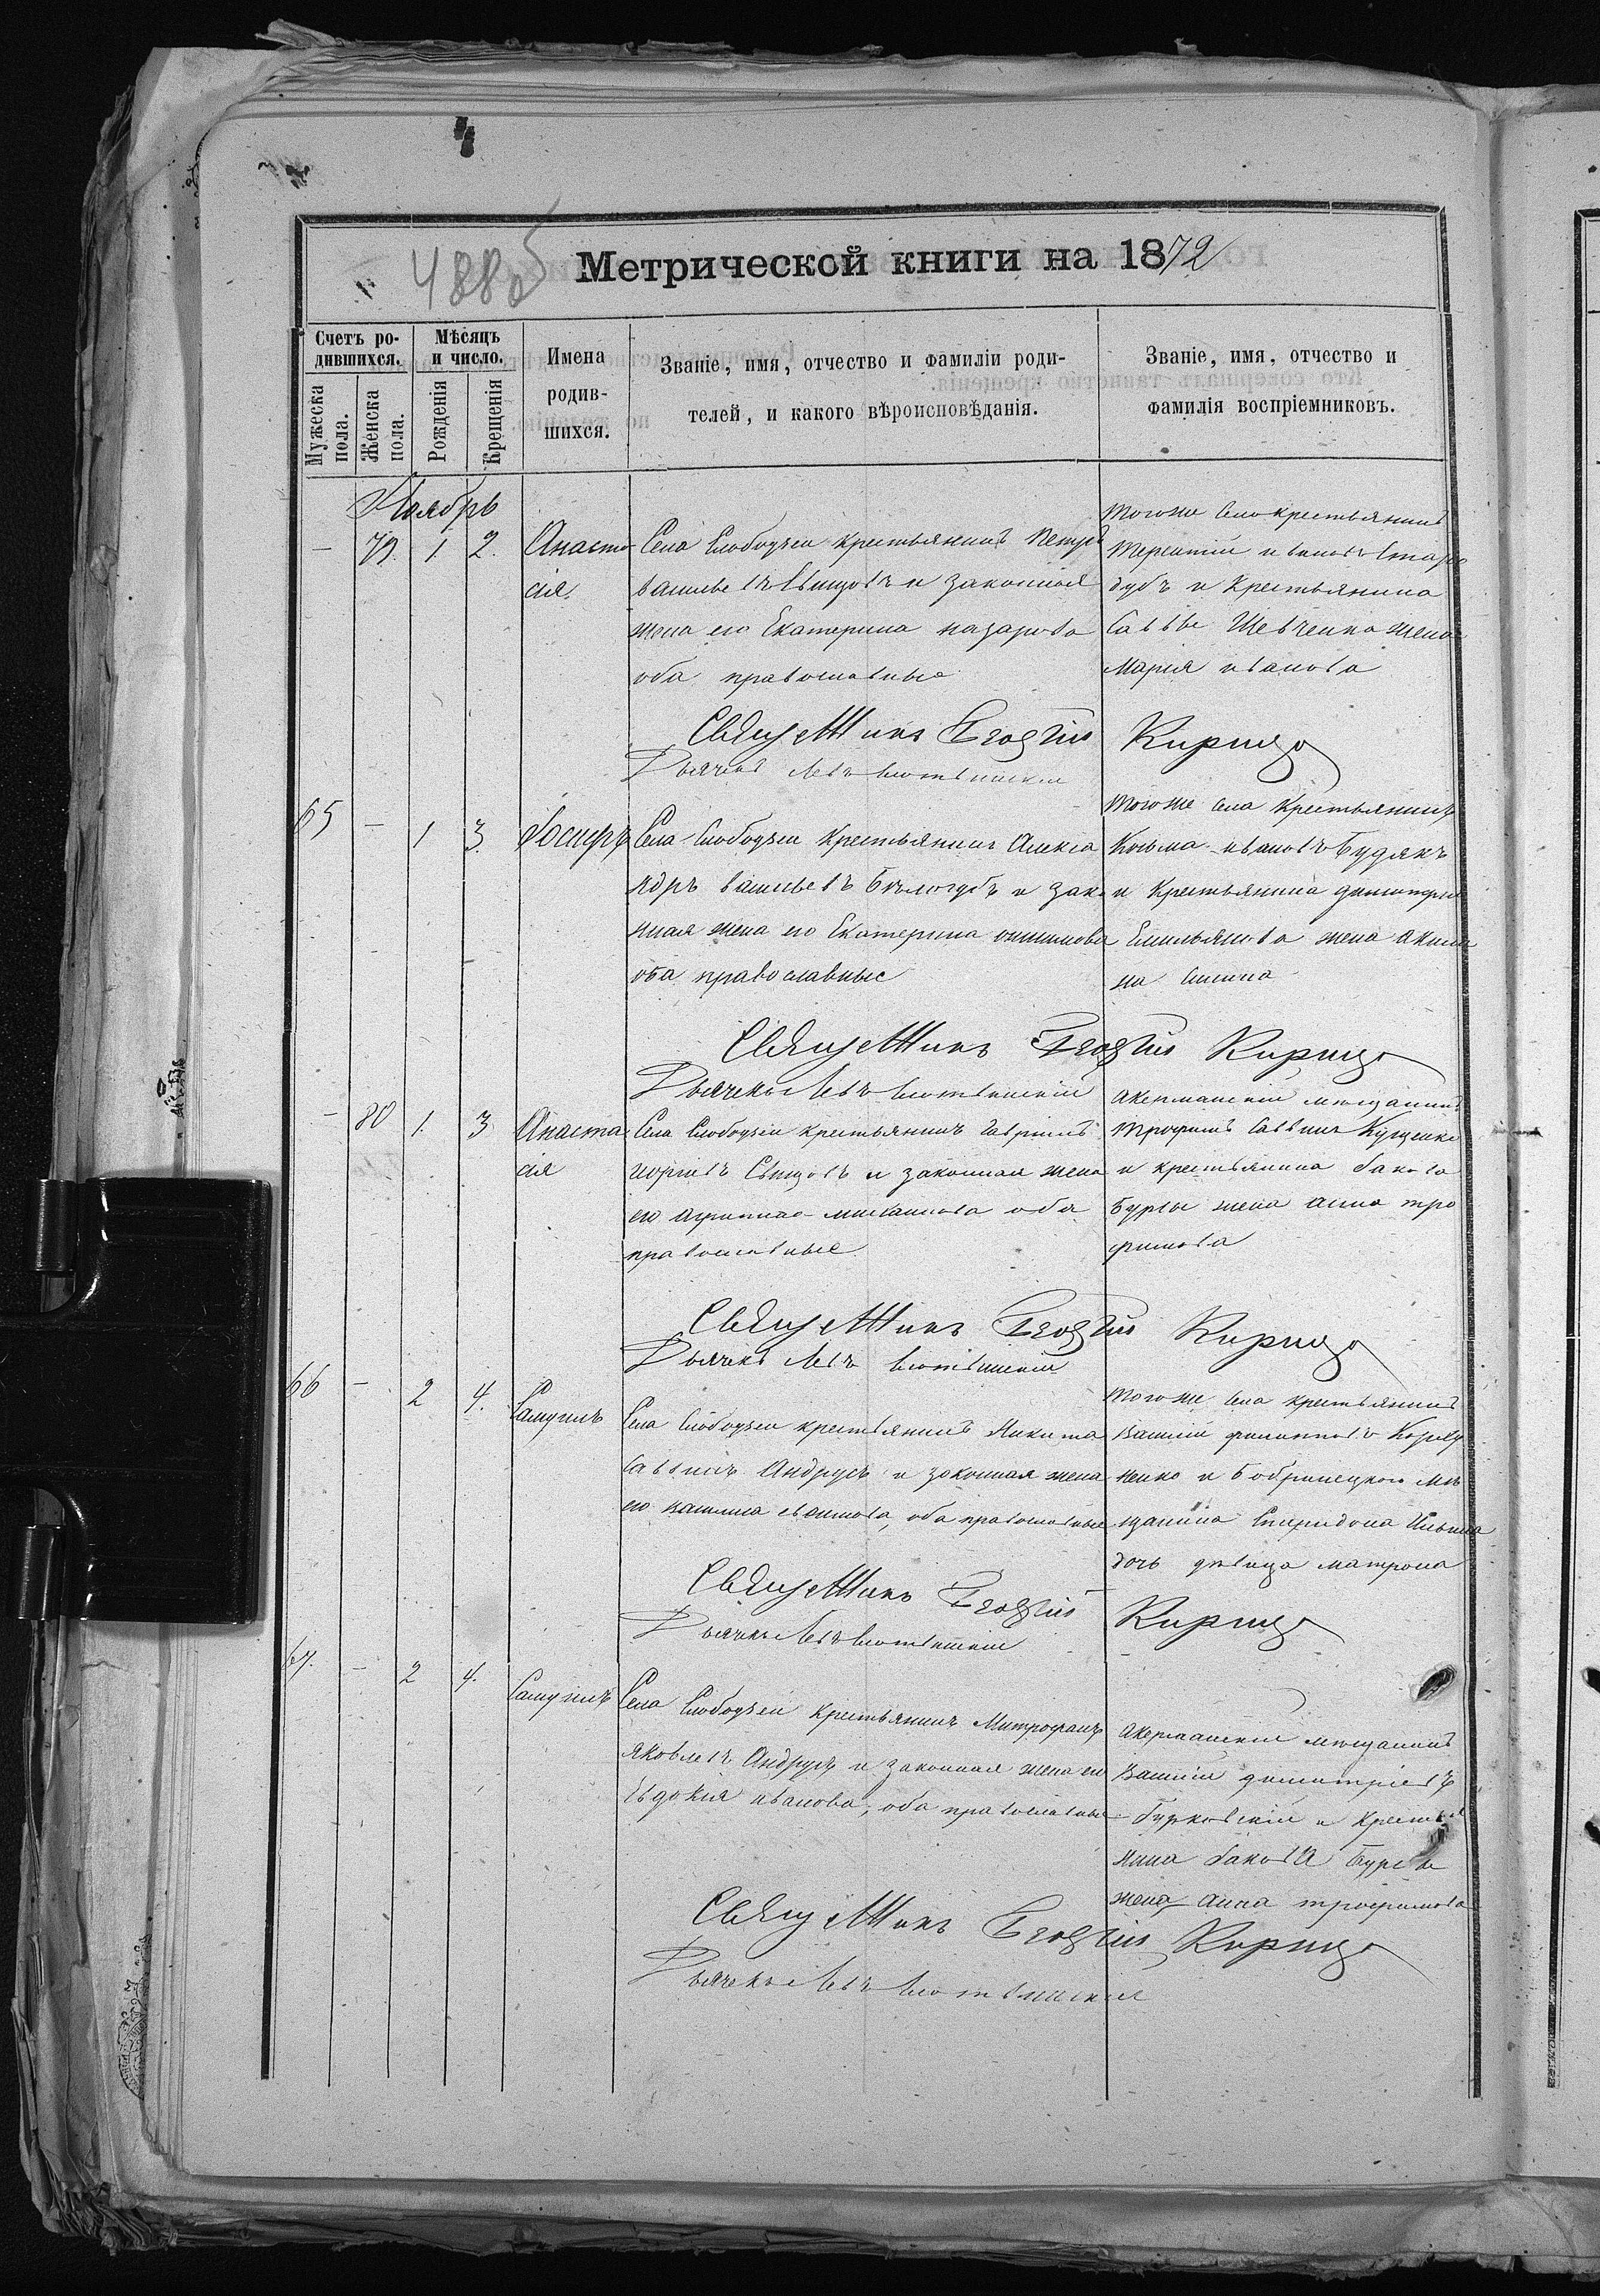 4886
Метрической книги на 1872
Счетъ ро-
дившихся.
Мужеска
пола.
Женска
пола.
Мѣсяцъ
и число.
Рожденія
Крещенія
Имена
родив-
шихся.
Званіе, имя, отчество и фамиліи роди-
телей, и какого вѣроисповѣданія.
Званіе, имя, отчество и
фамилія воспріемниковъ.
Ноябрь
— 79. 1 2. Анаста
сія.
Села Слободзеи крестьянинъ Петръ
васильевъ и законная
жена его Екатерина назарова
оба православные
Тогоже села крестьянинъ
Терентій ивановъ Старо
дубъ и крестьянина
Саввы Шевченка жена
Марія иванова
Священникъ Георгій Кирица
Дьячекъ Левъ
65 — 1 3. Іосифъ
Села Слободзеи крестьянинъ Алекса
ндръ васильевъ Бѣлогубъ и зако
нная жена его Екатерина
оба православные
Тогоже села крестьянинъ
Козьма ивановъ Будякъ
и крестьянина димитрія
Емильянова жена акили
на
Священникъ Георгій Кирица
Дьячекъ Левъ
— 80 1. 3 Анаста
сія
Села Слободзеи крестьянинъ Гавріилъ
и законная жена
его оба
православные
Акерманскій мѣщанинъ
Трофимъ Саввинъ Куценко
и крестьянина Іакова
Бурсы жена анна тро
фимова
Священникъ Георгій Кирица
Дьячекъ Левъ
66 — 2 4. Самуилъ
Села Слободзеи крестьянинъ Никита
Саввинъ Андрусъ и законная жена
его оба православные
Тогоже села крестьянинъ
Василій филипповъ
и Бобринецкого мѣ
щанина Спиридона Ильина
дочь дѣвица матрона
Священникъ Георгій Кирица
Дьячекъ Левъ
67. — 2 4. Самуилъ
Села Слободзеи крестьянинъ Митрофанъ
яковлевъ Андрусъ и законная жена его
Евдокія иванова, оба православные
Акерманскій мѣщанинъ
Василій димитріевъ
Гурковскій и крестья
нина Іакова Бурсы
жена анна трофимова
Священникъ Георгій Кирица
Дьячекъ Левъ